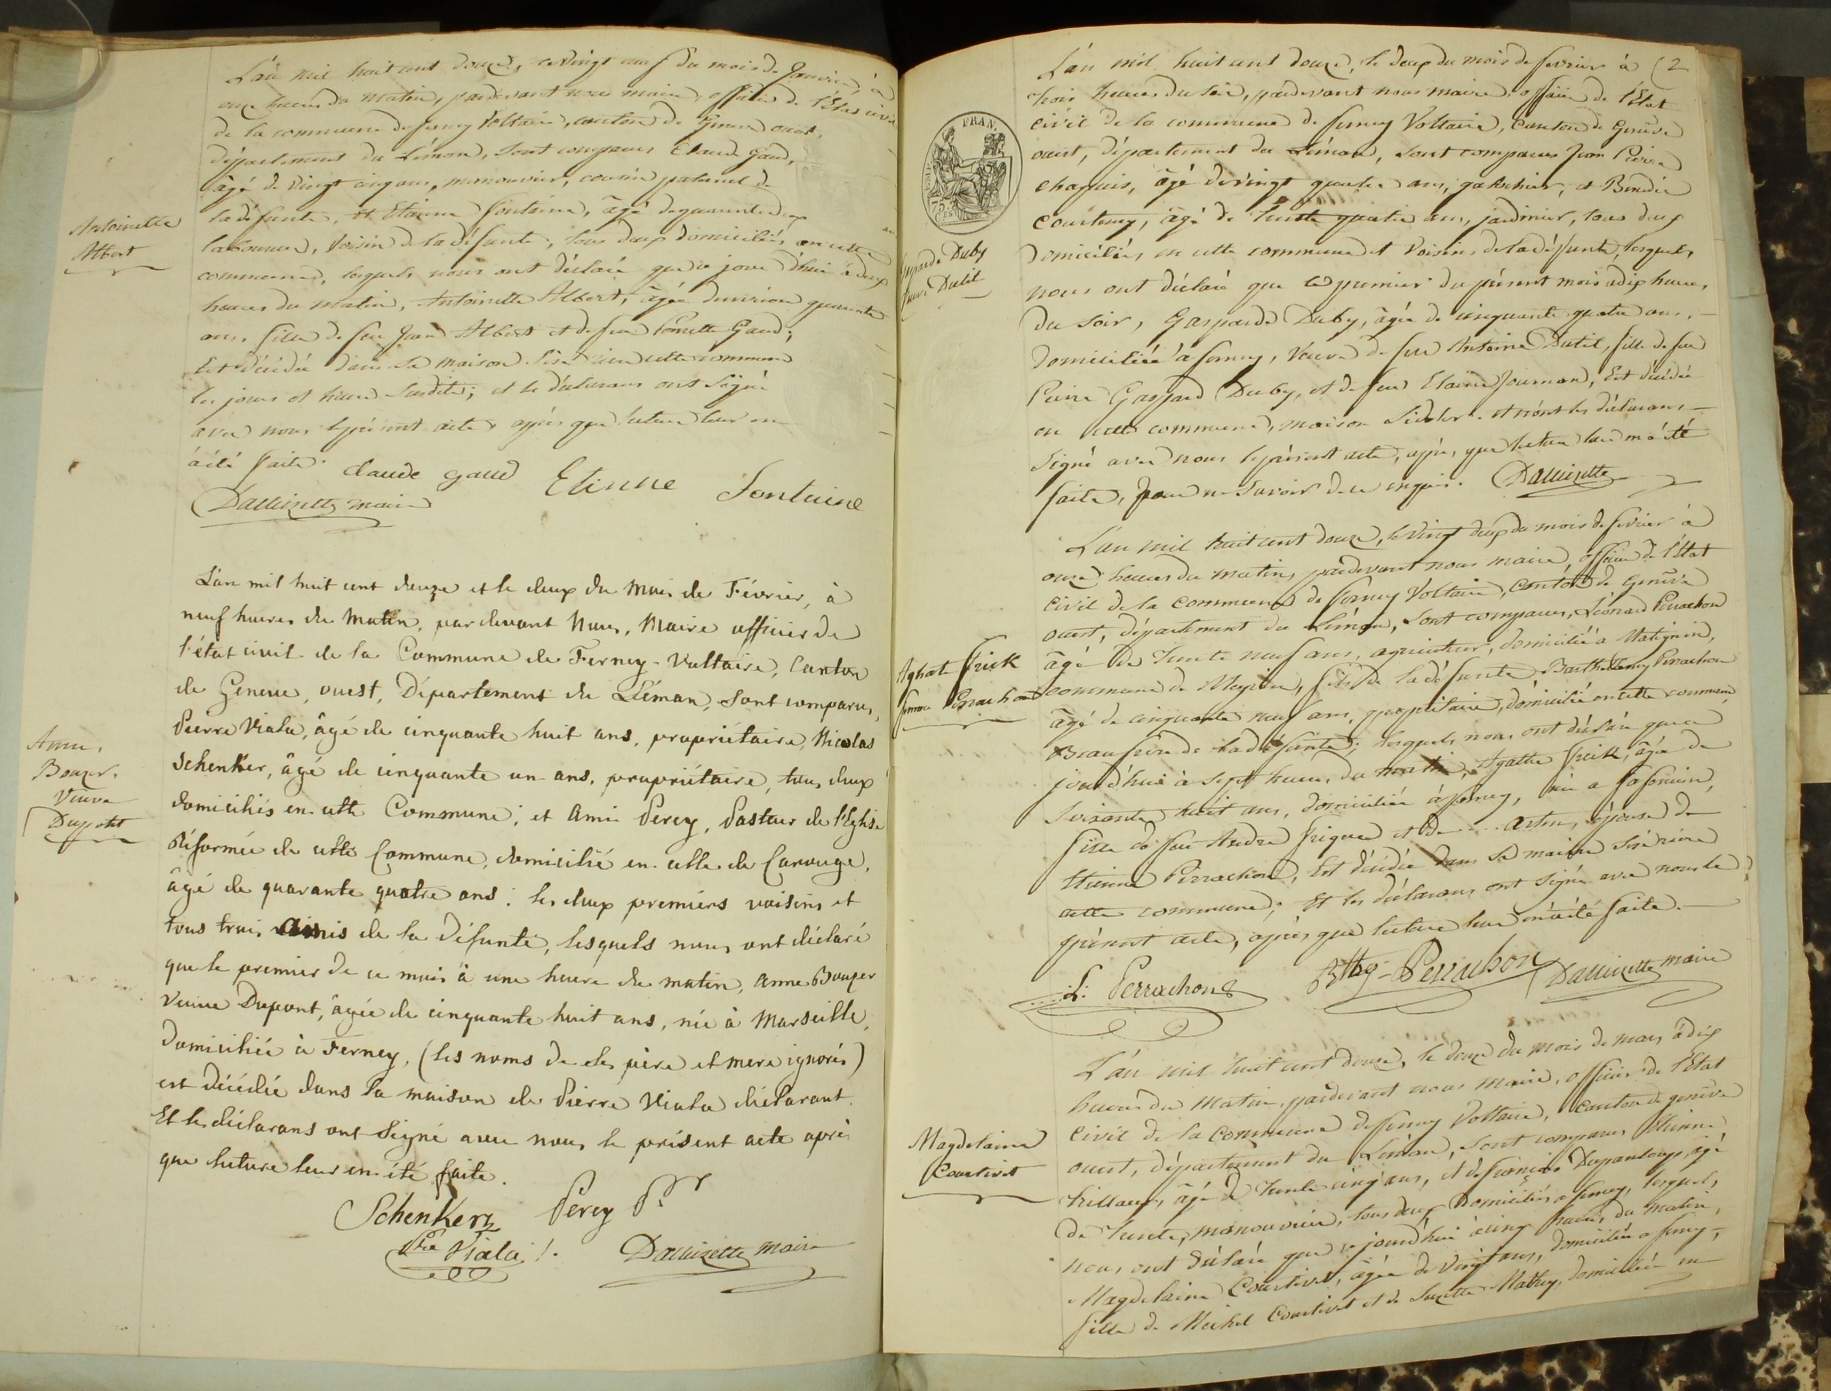 L'an mil huit cent douze, ce vingt neuf du mois de Janvier, à
onze heures du matin, pardevant nous maire, officier de l'État civil
de la commune de ferney Voltaire, canton de Geneve ouest,
département du Léman, sont comparus Claude Gaud,
âgé de vingt cinq ans, manouvrier, cousin paternel de
la défunte, et Etienne fontaine, âgé de quarante deux
laboureur, voisin de la défunte, tous deux domiciliés en cette
commune, lesquels nous ont déclaré que ce jourd'hui à deux
heures du matin, Antoinette Albert, âgée d'environ quarante
ans, fille de feu Jean Albert et de feu Gaud,
Est décédée dans sa maison sise en cette commune
les jours et heure susdits; et les déclarans ont signé
avec nous le présent acte après que lecture leur en
à été faite.
claude gaud Etienne fontaine
Dallizette maire
Antoinette
Albert
L'an mil huit cent douze et le deux du mois de Février, à
neuf heures du matin, par devant Nous, Maire officier de
l'état civil de la Commune de Ferney-Voltaire, Canton
de Geneve, ouest, Département du Léman, sont comparus,
Pierre Viala, âgé de cinquante huit ans, propriétaire, Nicolas
Schenker, âgé de cinquante un ans, propriétaire, tous deux
domiciliés en cette Commune; et Ami Percy, Pasteur de l'Eglise
Réformée de cette Commune, domicilié en celle de Carouge,
âgé de quarante quatre ans: les deux premiers voisins et
tous trois amis de la Défunte, lesquels nous ont déclaré
que le premier de ce mois à une heure du matin, anne Bouzer
Veuve Dupont, âgée de cinquante huit ans, née à Marseille,
Domiciliée à Ferney, (les noms de ses père et mere ignorés)
est décédée dans la maison de Pierre Viala déclarant.
Et les déclarans ont signé avec nous le présent acte après
que lecture leur en été faite.
Schenker Percy Pr
Pre Viala Dallizette maire
Anne
Bouzer
Veuve
Dupont
2
L'an mil huit cent douze, le deux du mois de fevrier à
trois heures du soir, pardevant nous maire, officier de l'État
civil de la commune de ferney Voltaire, Canton de Genève
ouest, département du Léman, sont comparus Jean Pierre
chapuis, âgé de vingt quatre ans, et
âgé de trente quatre ans, jardinier, tous deux
domiciliés en cette commune et voisins de la défunte, lesquels
nous ont déclaré que le premier du présent mois à dix heures,
du soir, Gasparde Duby, âgée de cinquante quatre ans,
domiciliée à ferney, Veuve de feu Antoine Dutil, fille de feu
Pierre Gaspard Duby, et de feue Claire Est décédée
en cette commune, maison et n'ont les déclarans
signé avec nous le présent acte, après que lecture leur en à été
faite, pour ne savoir de ce enquis. Dallizette
FRAN.
Gasparde Duby
Dutil
L'an mil huit cent douze, le vingt deux du mois de fevrier à
onze heures du matin, pardevant nous maire, officier de l'État
civil de la commune de ferney Voltaire, canton de Genève
ouest, département du Léman, sont comparus, Léonard Perrachon
âgé de trente neuf ans, agriculteur, domicilié à Matignin,
commune de Meyrin, fils de la défunte, Barthelemy Perrachon
âgé de cinquante neuf ans, propriétaire, domicilié en cette commune,
Beaufrère de la défunte; lesquels nous ont déclaré que ce
jourd'hui à sept heures du matin, Agathe frick, âgée de
soixante huit ans, domiciliée à ferney, née a
fille de feu André et de épouse de
Etienne Perrachon, Est décédée dans sa maison sise
cette commune; et les déclarans ont signé avec nous le
présent acte, après que lecture leur en à été faite.
L. Perrachon Bthy Perrachon Dallizette maire
Agathe frick
femme Perrachon
L'an mil huit cent douze, le douze du mois de mars à dix
heures du matin, pardevant nous maire, officier de l'État
civil de la commune de ferney Voltaire, canton de genève
ouest, département du Léman, sont comparus Etienne
âgé de trente cinq ans, et françois âgé
de trente, manouvrier, tous deux domiciliés a ferney, lesquels
nous ont déclaré que ce jourd'hui à cinq heures du matin,
Magdelaine Courtivet, âgée de vingt ans, domiciliée a ferney,
fille de Michel Courtivet et de Suzette domiciliée en
Magdelaine
Courtivet